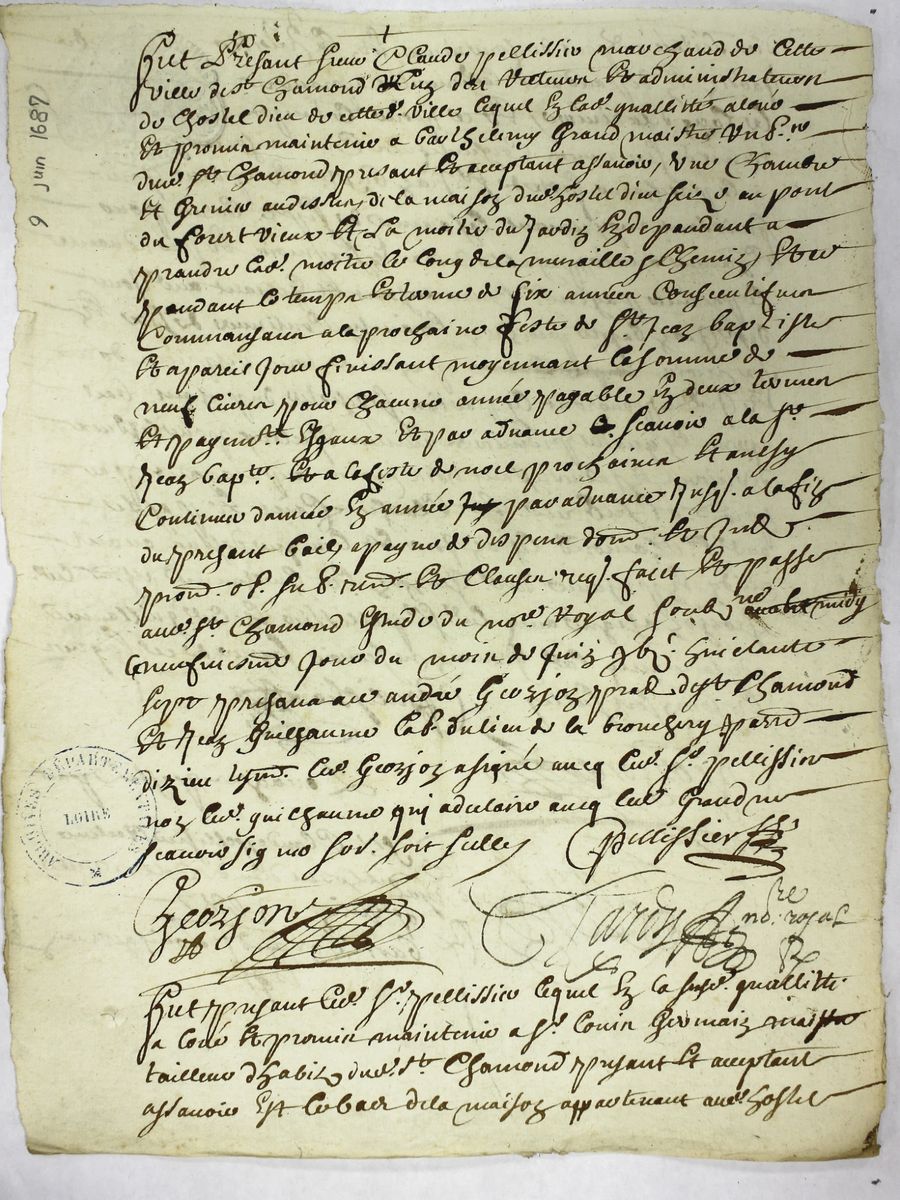 9 juin 1687
Fut Présant sieur Claude pellissier marchand de Cette
ville de st Chamond Lung des Recteurs Et administrateurs
de lhostel dieu de cette d. ville lequel En lad. quallitté a loué
Et promis maintenir a barthelemy Grand maistre
dud. st Chamond présant Et acceptant assavoir, Une Chambre
Et Grenier au dessus, de la maison dud. hostel dieu size au pont
du fourt vieux Et La moitié du Jardin En dépandant a
prandre lad. moitié le long de la muraille Et ce
pandant le temps Et terme de six années Consecutifves
Commansant a la prochaine feste de st Jean baptiste
Et a pareil Jour finissant moyennant la somme de
neuf livres pour Chacune année payable En deux termes
Et payemts. Esgaux Et par advance scavoir a la st
Jean bapte. Et a la feste de noel prochaines Et ainsy
Continuer dannée En année par advance Jusq. a la fin
du présant bail a payne de despens dom. Et Int.
prom. ob. sub. ren. Et Clauses req. faict Et passé
aud. st Chamond Estude du nore. Royal soubne. avant midy
Le neufviesme Jour du mois de Juin huictante
sept présans andré Georjon prat. de st Chamond
Et Jean Guilhaume lab. du lieu de la bronchery parr.
dizieu tesm. led. Georjon a signé avecq led. sr. pellissier
non led. guilhaume qui a declaire avecq led. Grand ne
scavoir signer soit sellé
Pellissier
Georjon
Tardy nore. royal
Fut présant led. sr. pellissier lequel En la susd. quallitté
a loué Et promis maintenir a sr. louis Germain maistre
tailleur dhabis dud. st. Chamond présant Et acceptant
assavoir Est le bas de la maison appartenant aud. hostel
ARCHIVES DÉPARTEMENTALES
LOIRE